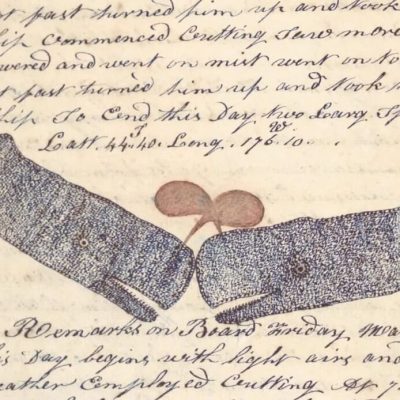 t past turned him up and Nook
hip commenced Cutting Saw more
owered and went on mist went on No
t past turned him up and Nook
ship To End this Day Two Larg Sp
Latt. 44..40. Long. 176.10 W
Remarks on Board Friday Ma
his Day begins with light airs and
eather Employed Cutting At 7